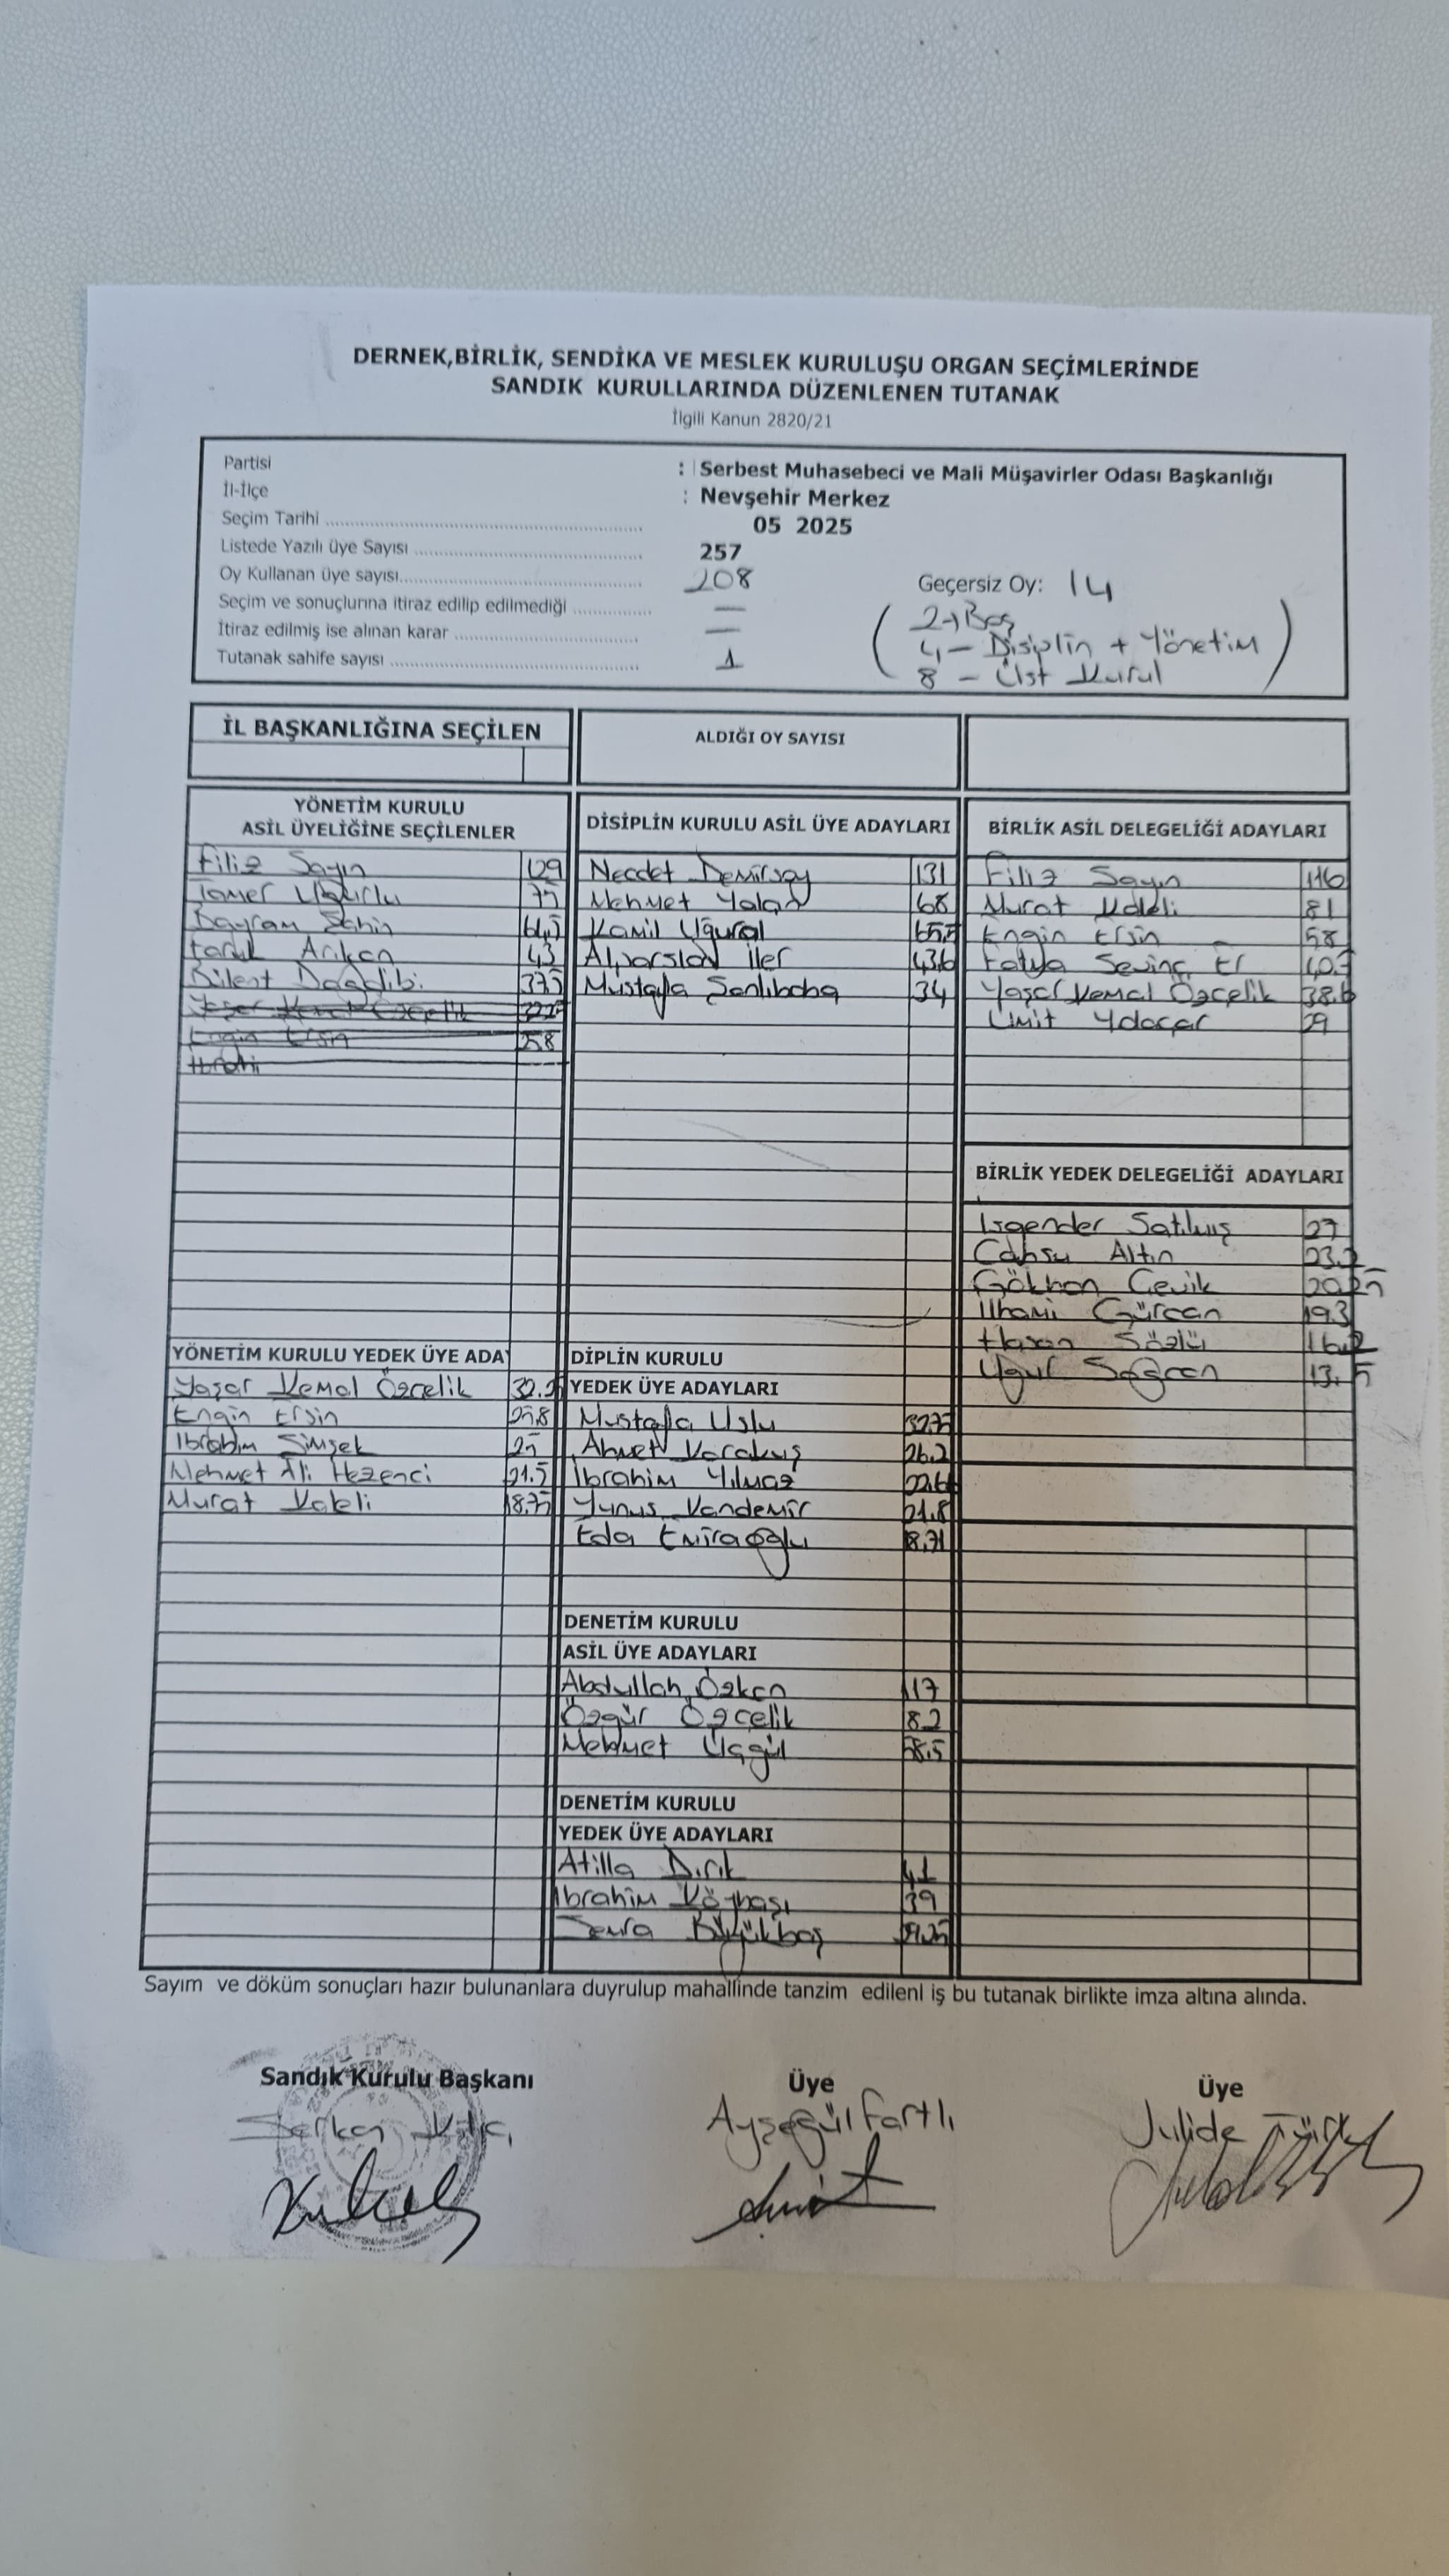 DERNEK,BİRLİK, SENDİKA VE MESLEK KURULUŞU ORGAN SEÇİMLERİNDE
SANDIK KURULLARINDA DÜZENLENEN TUTANAK
İlgili Kanun 2820/21
Partisi : Serbest Muhasebeci ve Mali Müşavirler Odası Başkanlığı
İl-İlçe : Nevşehir Merkez
Seçim Tarihi 05 2025
Listede Yazılı üye Sayısı 257
Oy Kullanan üye sayısı 208 Geçersiz Oy: 14
Seçim ve sonuçlurına itiraz edilip edilmediği — 2→Boş
İtiraz edilmiş ise alınan karar — 4— Disiplin + Yönetim
Tutanak sahife sayısı 1 8 — Üst Kurul
İL BAŞKANLIĞINA SEÇİLEN
ALDIĞI OY SAYISI
YÖNETİM KURULU
ASİL ÜYELİĞİNE SEÇİLENLER
Filiz Sayın 129
Tamer Uğurlu 75
Bayram Şahin 64,5
Faruk Arıkan 43
Bülent Dağdibi 37,5
Yaşar Kemal Özçelik
Engin Erşin 25.8
İbrahi
YÖNETİM KURULU YEDEK ÜYE ADA
Yaşar Kemal Özçelik
Engin Erşin 25.8
İbrahim Şimşek 25
Mehmet Ali Hezenci 21.5
Murat Kaleli 18.75
DİSİPLİN KURULU ASİL ÜYE ADAYLARI
Necdet Demirsoy 131
Mehmet Yalan 68
Kamil Uğural 65.5
Alparslan İler 43.6
Mustafa Şanlıbaba 34
DİPLİN KURULU
YEDEK ÜYE ADAYLARI
Mustafa Uslu 32.75
Ahmet Karakuş 26.2
İbrahim Yılmaz 22.6
Yunus Kandemir 21.8
Eda Emiraoğlu 8.71
DENETİM KURULU
ASİL ÜYE ADAYLARI
Abdullah Özkan 117
Özgür Özçelik 82
Mehmet Üçgül 58.5
DENETİM KURULU
YEDEK ÜYE ADAYLARI
Atilla Dırık 41
İbrahim Köybaşı 39
Semra Büyükbaş
BİRLİK ASİL DELEGELİĞİ ADAYLARI
Filiz Sayın 116
Murat Kaleli 81
Engin Erşin 58
Fatya Sevinç Er 40.5
Yaşar Kemal Özçelik 38.6
Ümit 29
BİRLİK YEDEK DELEGELİĞİ ADAYLARI
İsgender Satılmış 27
Cansu Altın 23.2
Gökhan Çevik 20.25
İlhami Gürcan 19.3
Hasan Sözlü 16.2
Uğur Sağcan 13.5
Sayım ve döküm sonuçları hazır bulunanlara duyrulup mahallinde tanzim edilenl iş bu tutanak birlikte imza altına alında.
Sandık Kurulu Başkanı
Üye
Üye
Serkan Kılıç
Ayşegül Fartlı
Julide